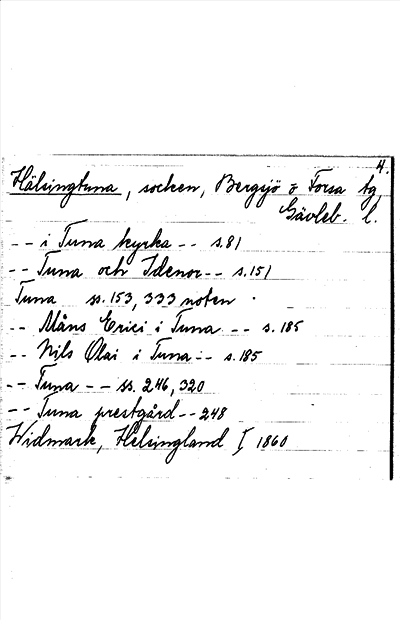 4.
Hälsingtuna, socken, Bergsjö o Forsa tg,
Gävleb. l.
-- i Tuna kyrka -- s.81
-- Tuna och Idenor -- s.151
Tuna ss. 153, 333 noten
-- Måns Erici i Tuna -- s. 185
-- Nils Olai i Tuna -- s.185
-- Tuna -- ss. 246, 320
-- Tuna prestgård -- 248
Widmark, Helsingland I 1860